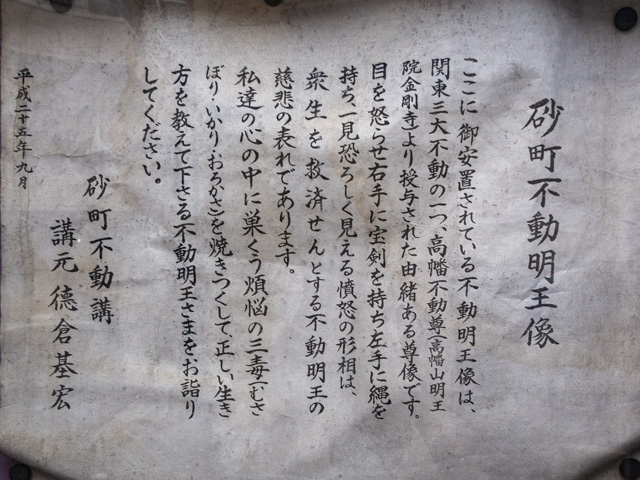 砂町不動明王像
ここに御安置されている不動明王像は、
関東三大不動の一つ、高幡不動尊(高幡山明王
院金剛寺)より授与された由緒ある尊像です。
目を怒らせ右手に宝剣を持ち左手に縄を
持ち、一見恐ろしく見える憤怒の形相は、
衆生を救済せんとする不動明王の
慈悲の表れであります。
私達の心の中に巣くう煩悩の三毒(むさ
ぼり・いかり・おろかさ)を焼きつくして、正しい生き
方を教えて下さる不動明王さまをお詣り
してください。
砂町不動講
講元 德倉基宏
平成二十五年九月